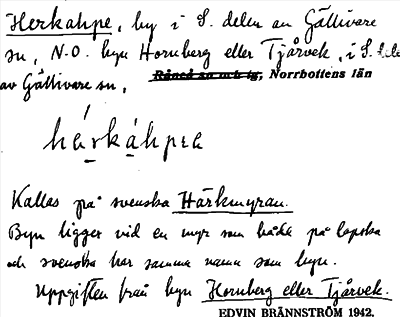 Herkahpe, by i S. delen av Gällivare
sn, N.O. byn Hornberg eller Tjårvek, i S. dele
av Gällivare sn, Råneå sn och tg, Norrbottens län
hárkáhpea
Kallas på svenska Härkmyran.
Byn ligger vid en myr som både på lapska
och svenska har samma namn som byn.
Uppgiften från byn Hornberg eller Tjårvek.
EDVIN BRÄNNSTRÖM 1942.